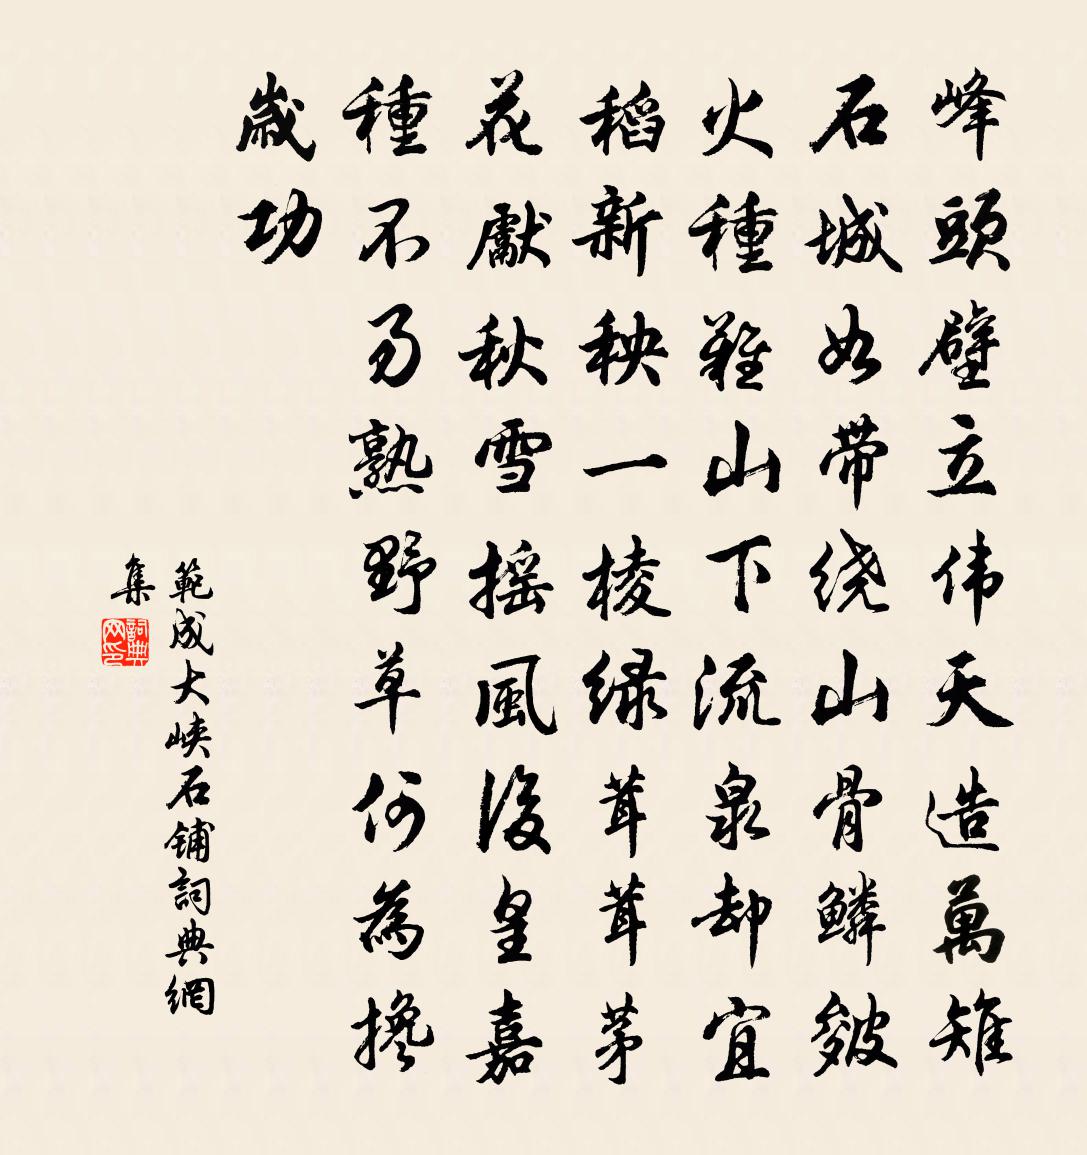 峰頭壁立伟天造萬雉
石城如带绕山骨鳞皴
火種難山下流泉却宜
稻新秧一棱绿茸茸茅
花獻秋雪摇風後皇嘉
種不易熟野草何為搀
歲功
範成大峡石鋪詞典網
集
詞典
网印